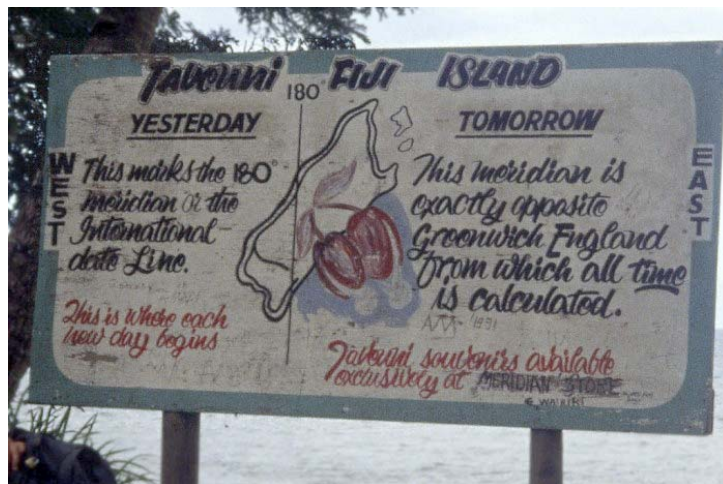 Tavouni Fiji Island
180°
YESTERDAY
WEST
This marks the 180°
meridian or the
International
date Line.
This is where each
new day begins
TOMORROW
EAST
This meridian is
exactly opposite
Greenwich England
from which all time
is calculated.
1991
Tavouni souvenirs available
exclusively at MERIDIAN STORE
@ WAIRIKI